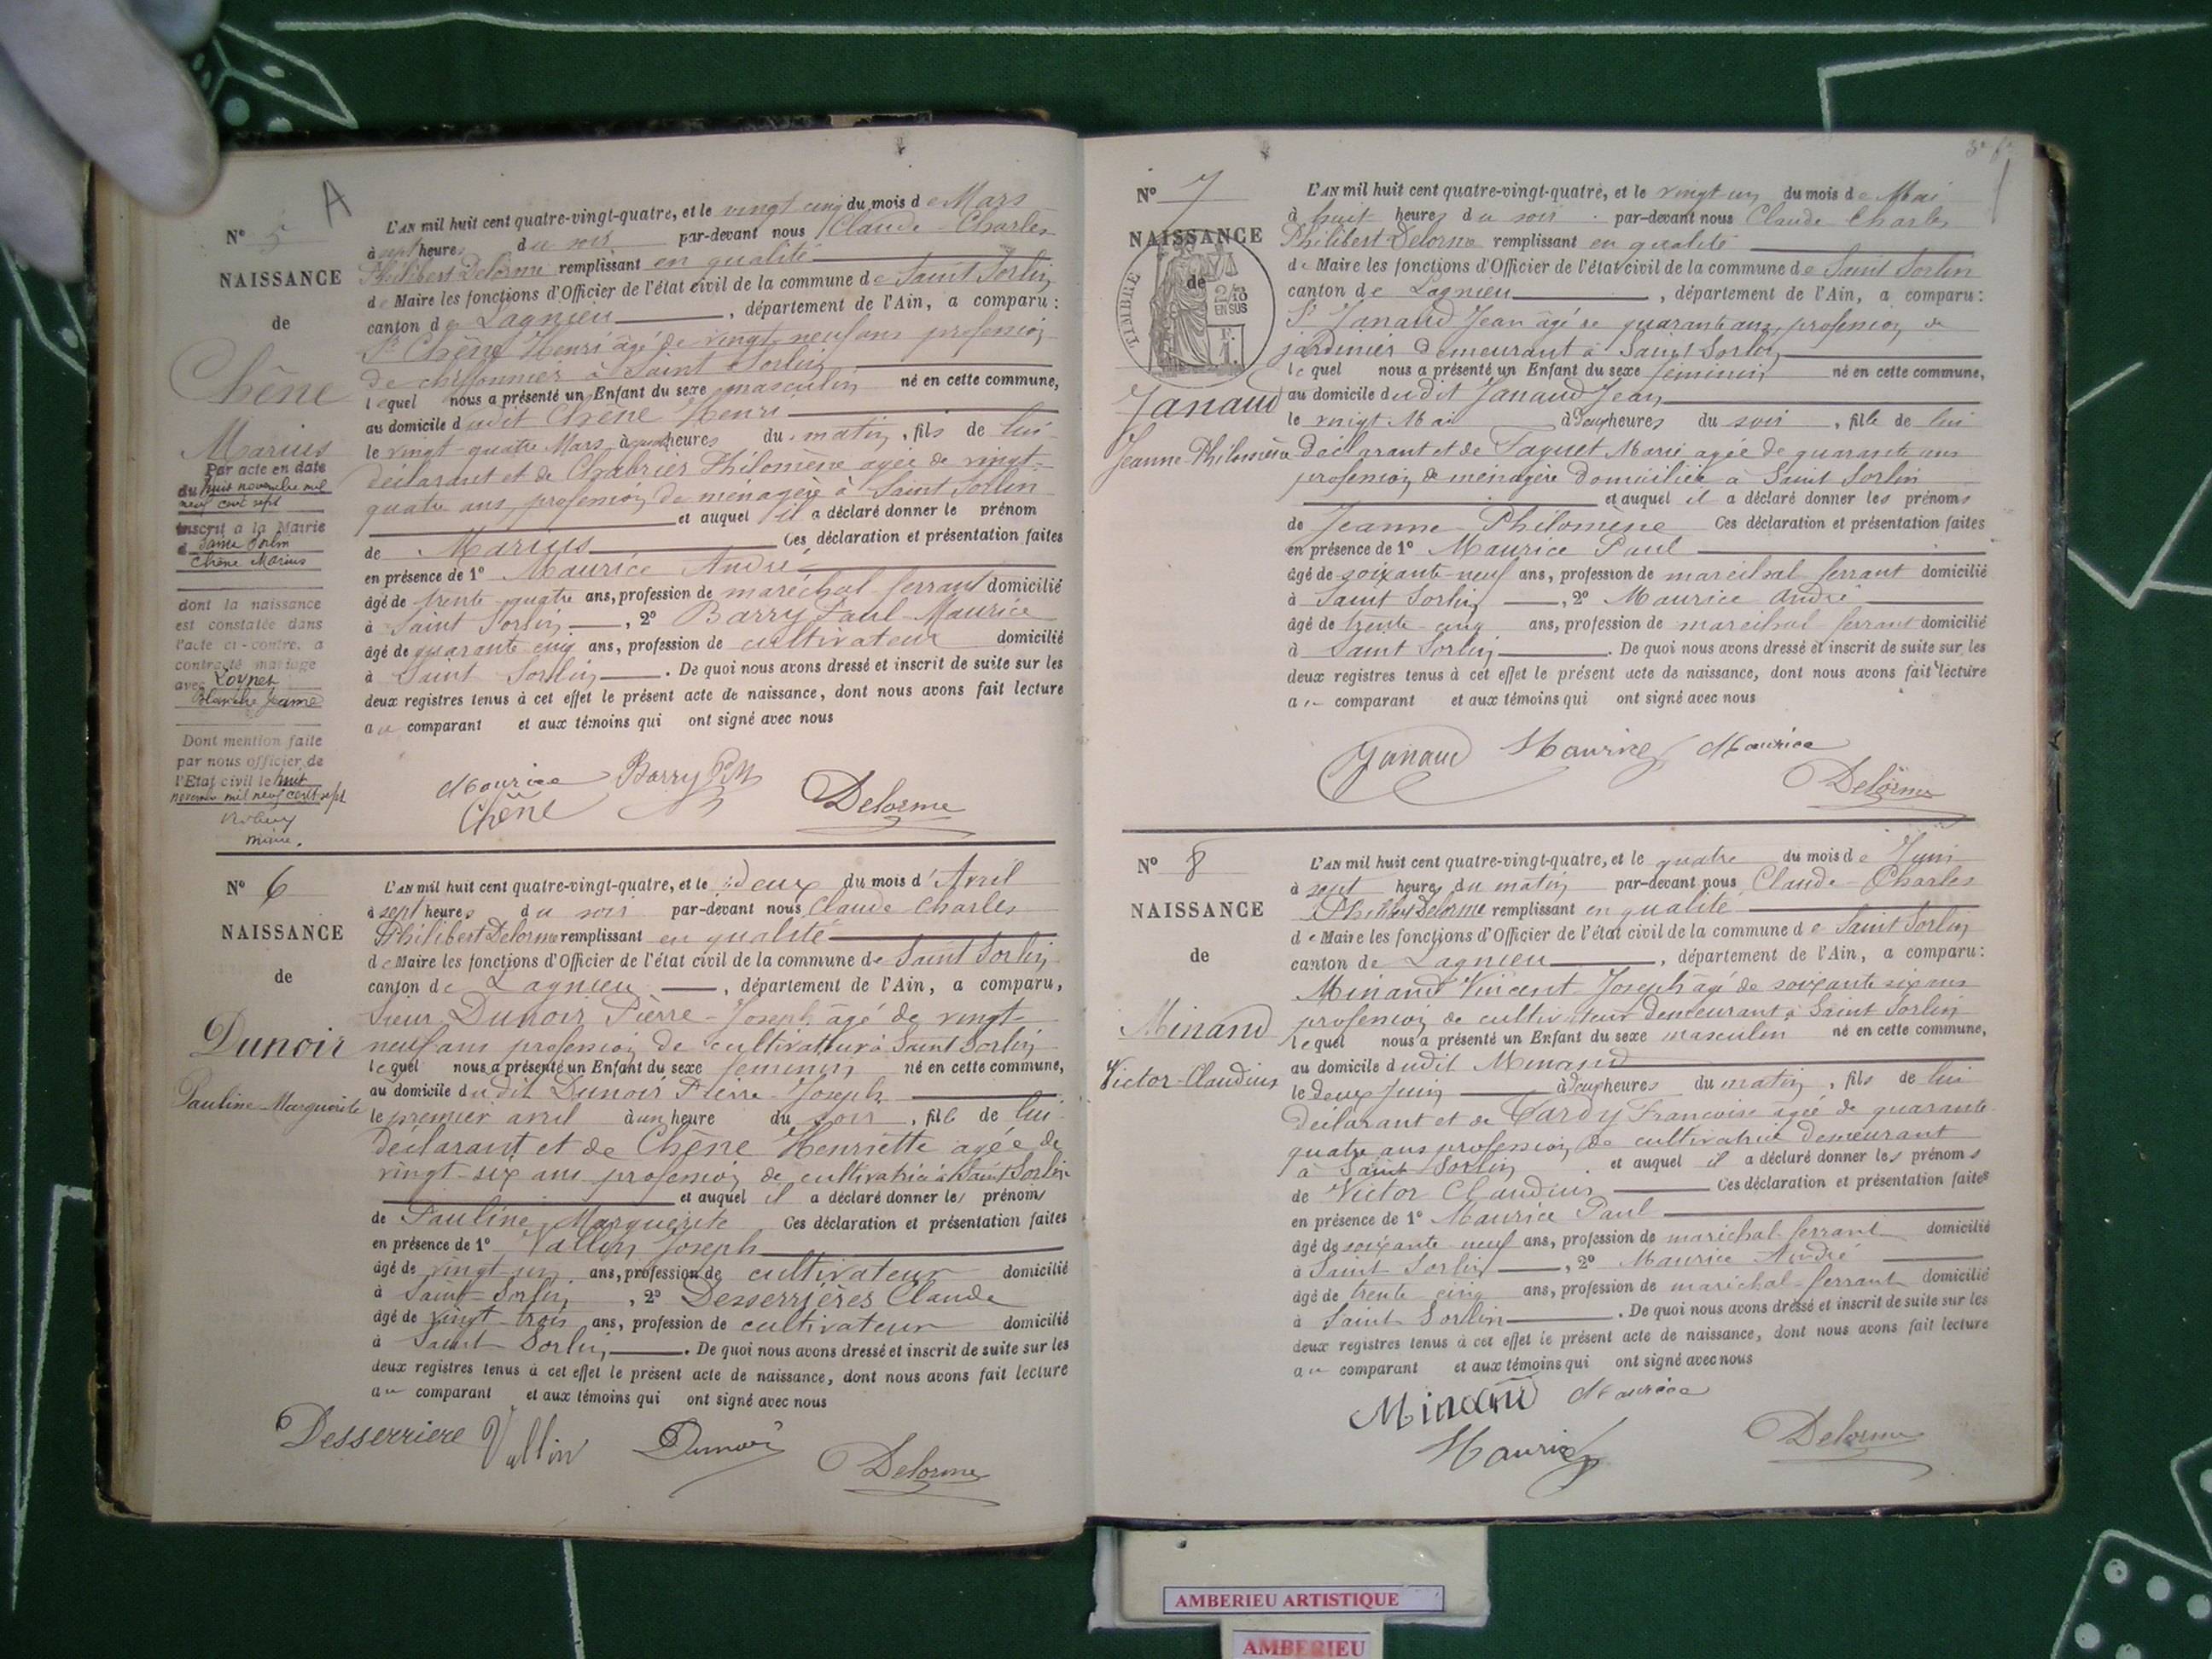 A
N° 5
NAISSANCE
de
Chêne
Marius
Par acte en date
du huit novembre mil
neuf cent sept
inscrit à la Mairie
d Saint Sorlin
Chêne Marius
dont la naissance
est constatée dans
l'acte ci-contre, a
contracté mariage
avec Loynet
Blanche Jeanne
Dont mention faite
par nous officier de
l'Etat civil le huit
novembre mil neuf cent sept
maire.
L'AN mil huit cent quatre-vingt-quatre, et le vingt cinq du mois de Mars
à sept heures du soir par-devant nous Claude-Charles
Philibert Delorme remplissant en qualité
de Maire les fonctions d'Officier de l'état civil de la commune de Saint Sorlin
canton de Lagnieu, département de l'Ain, a comparu :
Sr Chêne Henri âgé de vingt neuf ans profession
de chiffonnier à Saint Sorlin
lequel nous a présenté un Enfant du sexe masculin né en cette commune,
au domicile dudit Chêne Henri
le vingt-quatre Mars, à heures du matin, fils de lui
déclarant et de Chabrier Philomène agée de vingt-
quatre ans, profession de ménagère à Saint Sorlin
et auquel il a déclaré donner le prénom
de Marius Ces déclaration et présentation faites
en présence de 1° Maurice André
âgé de trente-quatre ans, profession de maréchal ferrant domicilié
à Saint Sorlin, 2° Barry Paul-Maurice
âgé de quarante cinq ans, profession de cultivateur domicilié
à Saint Sorlin. De quoi nous avons dressé et inscrit de suite sur les
deux registres tenus à cet effet le présent acte de naissance, dont nous avons fait lecture
au comparant et aux témoins qui ont signé avec nous
Maurice Barry PM
Chêne Delorme
N° 6
NAISSANCE
de
Dunoir
Pauline-Marguerite
L'AN mil huit cent quatre-vingt-quatre, et le deux du mois d'Avril
à sept heures du soir par-devant nous Claude Charles
Philibert Delorme remplissant en qualité
de Maire les fonctions d'Officier de l'état civil de la commune de Saint Sorlin
canton de Lagnieu, département de l'Ain, a comparu,
Sieur Dunoir Pierre-Joseph âgé de vingt-
neuf ans profession de cultivateur à Saint Sorlin
lequel nous a présenté un Enfant du sexe féminin né en cette commune,
au domicile dudit Dunoir Pierre-Joseph
le premier avril à un heure du soir, fille de lui
déclarant et de Chêne Henriette agée de
vingt-six ans profession de cultivatrice à Saint Sorlin
et auquel il a déclaré donner les prénoms
de Pauline Marguerite Ces déclaration et présentation faites
en présence de 1° Vallin Joseph
âgé de vingt-un ans, profession de cultivateur domicilié
à Saint-Sorlin, 2° Desserrières Claude
âgé de vingt-trois ans, profession de cultivateur domicilié
à Saint-Sorlin. De quoi nous avons dressé et inscrit de suite sur les
deux registres tenus à cet effet le présent acte de naissance, dont nous avons fait lecture
au comparant et aux témoins qui ont signé avec nous
Desserriere Vallin Dunoir Delorme
N° 7
NAISSANCE
de
TIMBRE
2/10
EN SUS
Janaud
Jeanne-Philomène
L'AN mil huit cent quatre-vingt-quatre, et le vingt un du mois de Mai
à huit heures du soir par-devant nous Claude Charles
Philibert Delorme remplissant en qualité
de Maire les fonctions d'Officier de l'état civil de la commune de Saint Sorlin
canton de Lagnieu, département de l'Ain, a comparu :
Sr Janaud Jean âgé de quarante ans, profession de
jardinier demeurant à Saint Sorlin
lequel nous a présenté un Enfant du sexe féminin né en cette commune,
au domicile dudit Janaud Jean
le vingt Mai à deux heures du soir, fille de lui
déclarant et de Paquet Marie agée de quarante ans
profession de ménagère domiciliée à Saint Sorlin
et auquel il a déclaré donner les prénoms
de Jeanne-Philomène Ces déclaration et présentation faites
en présence de 1° Maurice Paul
âgé de soixante-neuf ans, profession de maréchal ferrant domicilié
à Saint Sorlin, 2° Maurice André
âgé de trente-cinq ans, profession de maréchal-ferrant domicilié
à Saint Sorlin. De quoi nous avons dressé et inscrit de suite sur les
deux registres tenus à cet effet le présent acte de naissance, dont nous avons fait lecture
au comparant et aux témoins qui ont signé avec nous
Janaud Maurice Maurice
Delorme
N° 8
NAISSANCE
de
Minand
Victor-Claudius
L'AN mil huit cent quatre-vingt-quatre, et le quatre du mois de Juin
à sept heures du matin par-devant nous Claude-Charles
Philibert Delorme remplissant en qualité
de Maire les fonctions d'Officier de l'état civil de la commune de Saint Sorlin
canton de Lagnieu, département de l'Ain, a comparu :
Minand Vincent-Joseph âgé de soixante six ans
profession de cultivateur demeurant à Saint Sorlin
lequel nous a présenté un Enfant du sexe masculin né en cette commune,
au domicile dudit Minand
le deux Juin à deux heures du matin, fils de lui
déclarant et de Tardy Françoise agée de quarante-
quatre ans profession de cultivatrice demeurant
à Saint Sorlin et auquel il a déclaré donner les prénoms
de Victor Claudius Ces déclaration et présentation faites
en présence de 1° Maurice Paul
âgé de soixante-neuf ans, profession de maréchal-ferrant domicilié
à Saint Sorlin, 2° Maurice André
âgé de trente cinq ans, profession de maréchal-ferrant domicilié
à Saint Sorlin. De quoi nous avons dressé et inscrit de suite sur les
deux registres tenus à cet effet le présent acte de naissance, dont nous avons fait lecture
au comparant et aux témoins qui ont signé avec nous
Minand Maurice
Maurice Delorme
AMBERIEU ARTISTIQUE
AMBERIEU